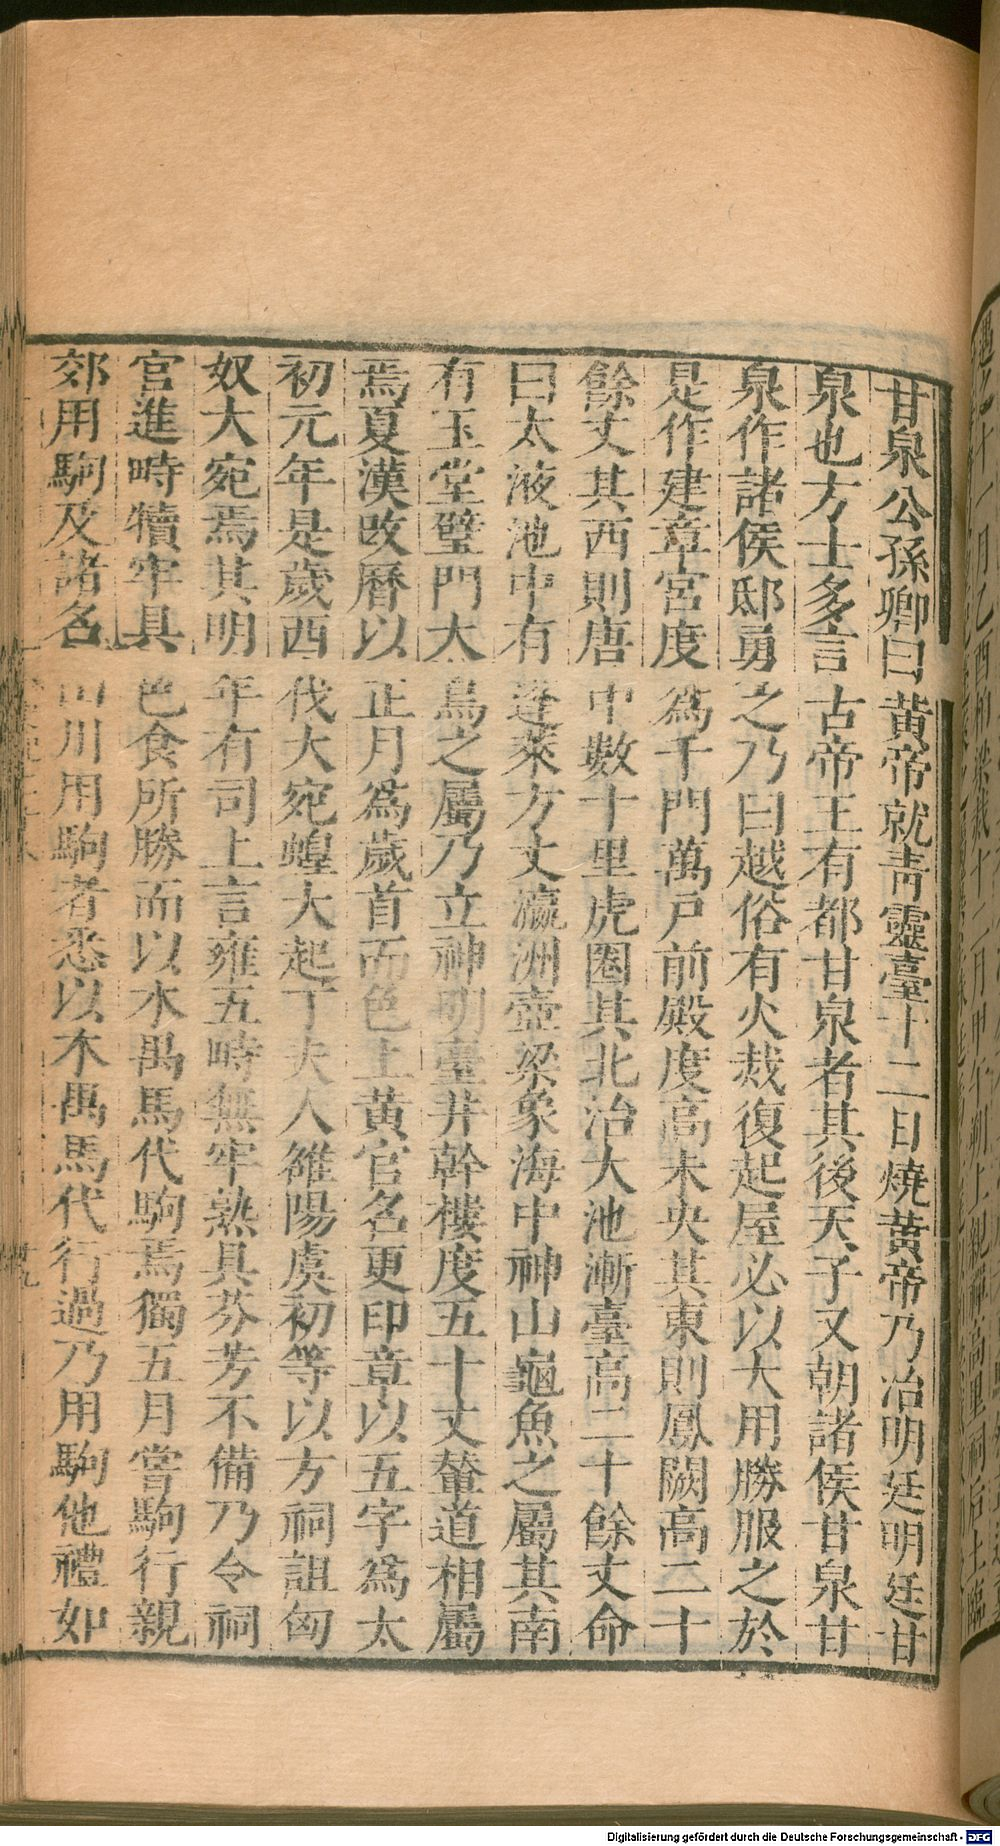 甘泉公孫卿曰黃帝就靑靈臺十二日燒黃帝乃治明廷明廷甘
泉也方士多言古帝王有都甘泉者其後天子又朝諸侯甘泉甘
泉作諸侯邸勇之乃曰越俗有火烖復起屋必以大用勝服之於
是作建章宮度爲千門萬戸前殿度高未央其東則鳳闕高二十
餘丈其西則唐中數十里虎圈其北治大池漸臺高二十餘丈命
曰太液池中有蓬萊方丈瀛洲壺梁象海中神山龜魚之屬其南
有玉堂璧門大鳥之屬乃立神明臺井幹樓度五十丈輦道相屬
焉夏漢改曆以正月爲歲首而色上黃官名更印章以五字爲太
初元年是歲西伐大宛蝗大起丁夫人雒陽虞初等以方祠詛匈
奴大宛焉其明年有司上言雍五畤無牢熟具芬芳不備乃令祠
官進畤犢牢具色食所勝而以木禺馬代駒焉獨五月嘗駒行親
郊用駒及諸名山川用駒者悉以木禺馬代行過乃用駒他禮如
Digitalisierung gefördert durch die Deutsche Forschungsgemeinschaft - DFG